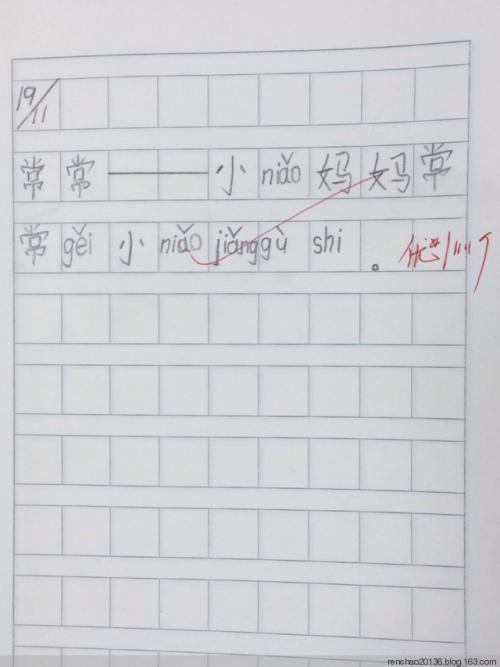 19/11
常常——小niǎo妈妈常
常gěi小niǎo jiǎnggù shi。优
renchao20136.blog.163.com